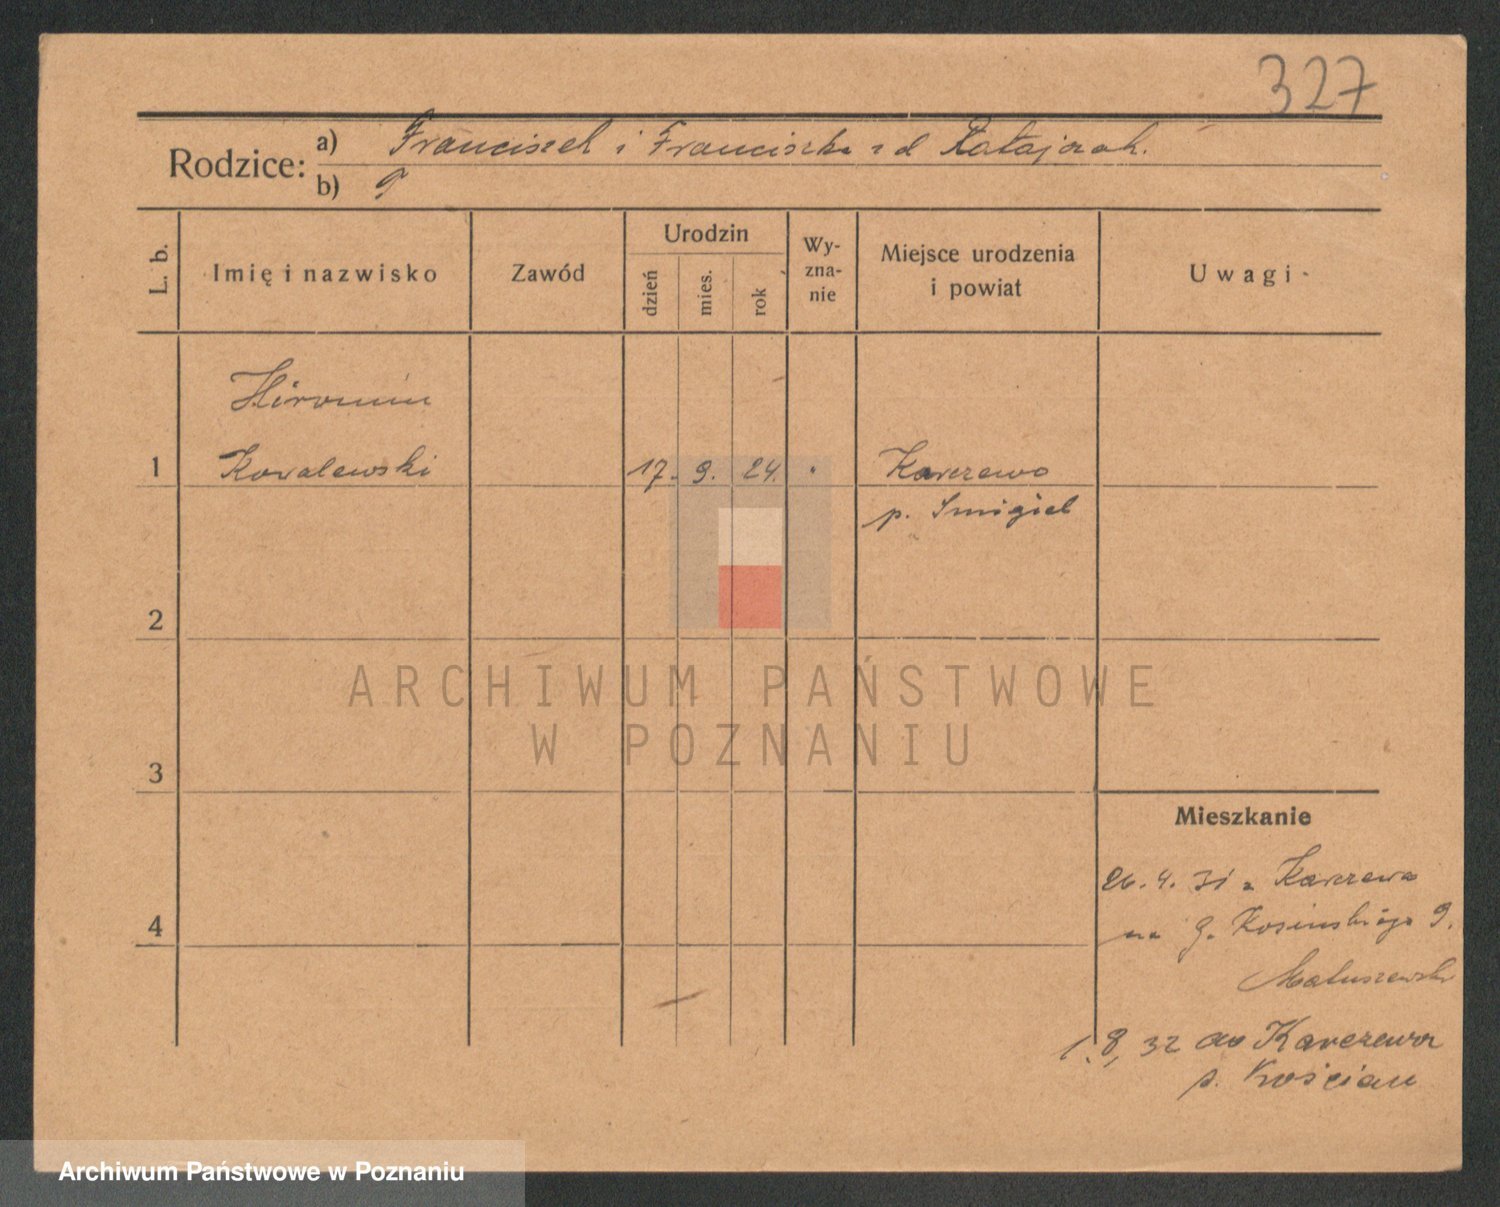 327
Rodzice:
a) Franciszek i Franciszka z d Ratajczak.
b)
L. b.
Imię i nazwisko
Zawód
Urodzin
dzień
mies.
rok
Wy-
zna-
nie
Miejsce urodzenia
i powiat
Uwagi
Hironim
1 Kowalewski 17. 9. 24. Karczewo
p. Smigiel
2
ARCHIWUM PAŃSTWOWE
W POZNANIU
3
Mieszkanie
26. 4. 31 z Karczewa
4
na g. Kosinskiego 9.
Matuszewski
1. 8, 32 do Karczewa
p. Kościan
Archiwum Państwowe w Poznaniu